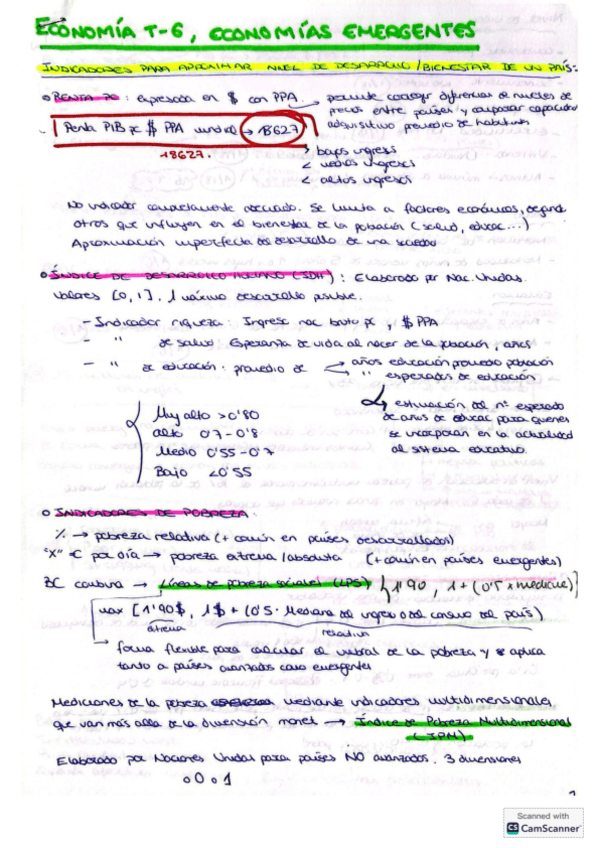 ECONOMÍA T-6, ECONOMÍAS EMERGENTES
INDICADORES PARA APROXIMAR NIVEL DE DESARROLLO / BIENESTAR DE UN PAÍS:
o RENTA PC: expresada en $ con PPA → permite corregir diferencias de niveles de
precios entre países y comparar capacidad
adquisitiva promedio de habitantes
- Renta PIBpc $ PPA mundial → 18627
18627.
> bajos ingresos
< medios ingresos
< altos ingresos
No indicador completamente adecuado. Se limita a factores económicos, dejando
otros que influyen en el bienestar de la población (salud, educac...)
Aproximación imperfecta de desarrollo de una sociedad
o ÍNDICE DE DESARROLLO HUMANO (IDH): Elaborado por Nac. Unidas.
Valores [0,1], 1 máximo desarrollo posible.
- Indicador riqueza: Ingreso nac bruto pc, $ PPA
- " de salud Esperanza de vida al nacer de la población, años
- " de educación: promedio de años educación promedio población
" esperados de educación
↳ estimación del nº esperado
de años de educac para quienes
se incorporan en la actualidad
al sistema educativo.
Muy alto > 0'80
alto 0'7 - 0'8
Medio 0'55 - 0'7
Bajo < 0'55
o INDICADORES DE POBREZA:
% → pobreza relativa (+ común en países desarrollados)
"X" € por día → pobreza extrema / absoluta (+ común en países emergentes)
BC combina → Líneas de pobreza sociales (LPS) 1'90, 1 + (0'5 × mediana)
max [1'90$, 1$ + (0'5 · Mediana del ingreso o del consumo del país)
extrema relativa
→ forma flexible para calcular el umbral de la pobreza y se aplica
tanto a países avanzados como emergentes
Mediciones de la pobreza mediante indicadores multidimensionales
que van más allá de la dimensión monet → Índice de Pobreza Multidimensional
(IPM)
Elaborado por Naciones Unidas para países NO avanzados. 3 dimensiones
o 0 o 1
Scanned with
CS CamScanner